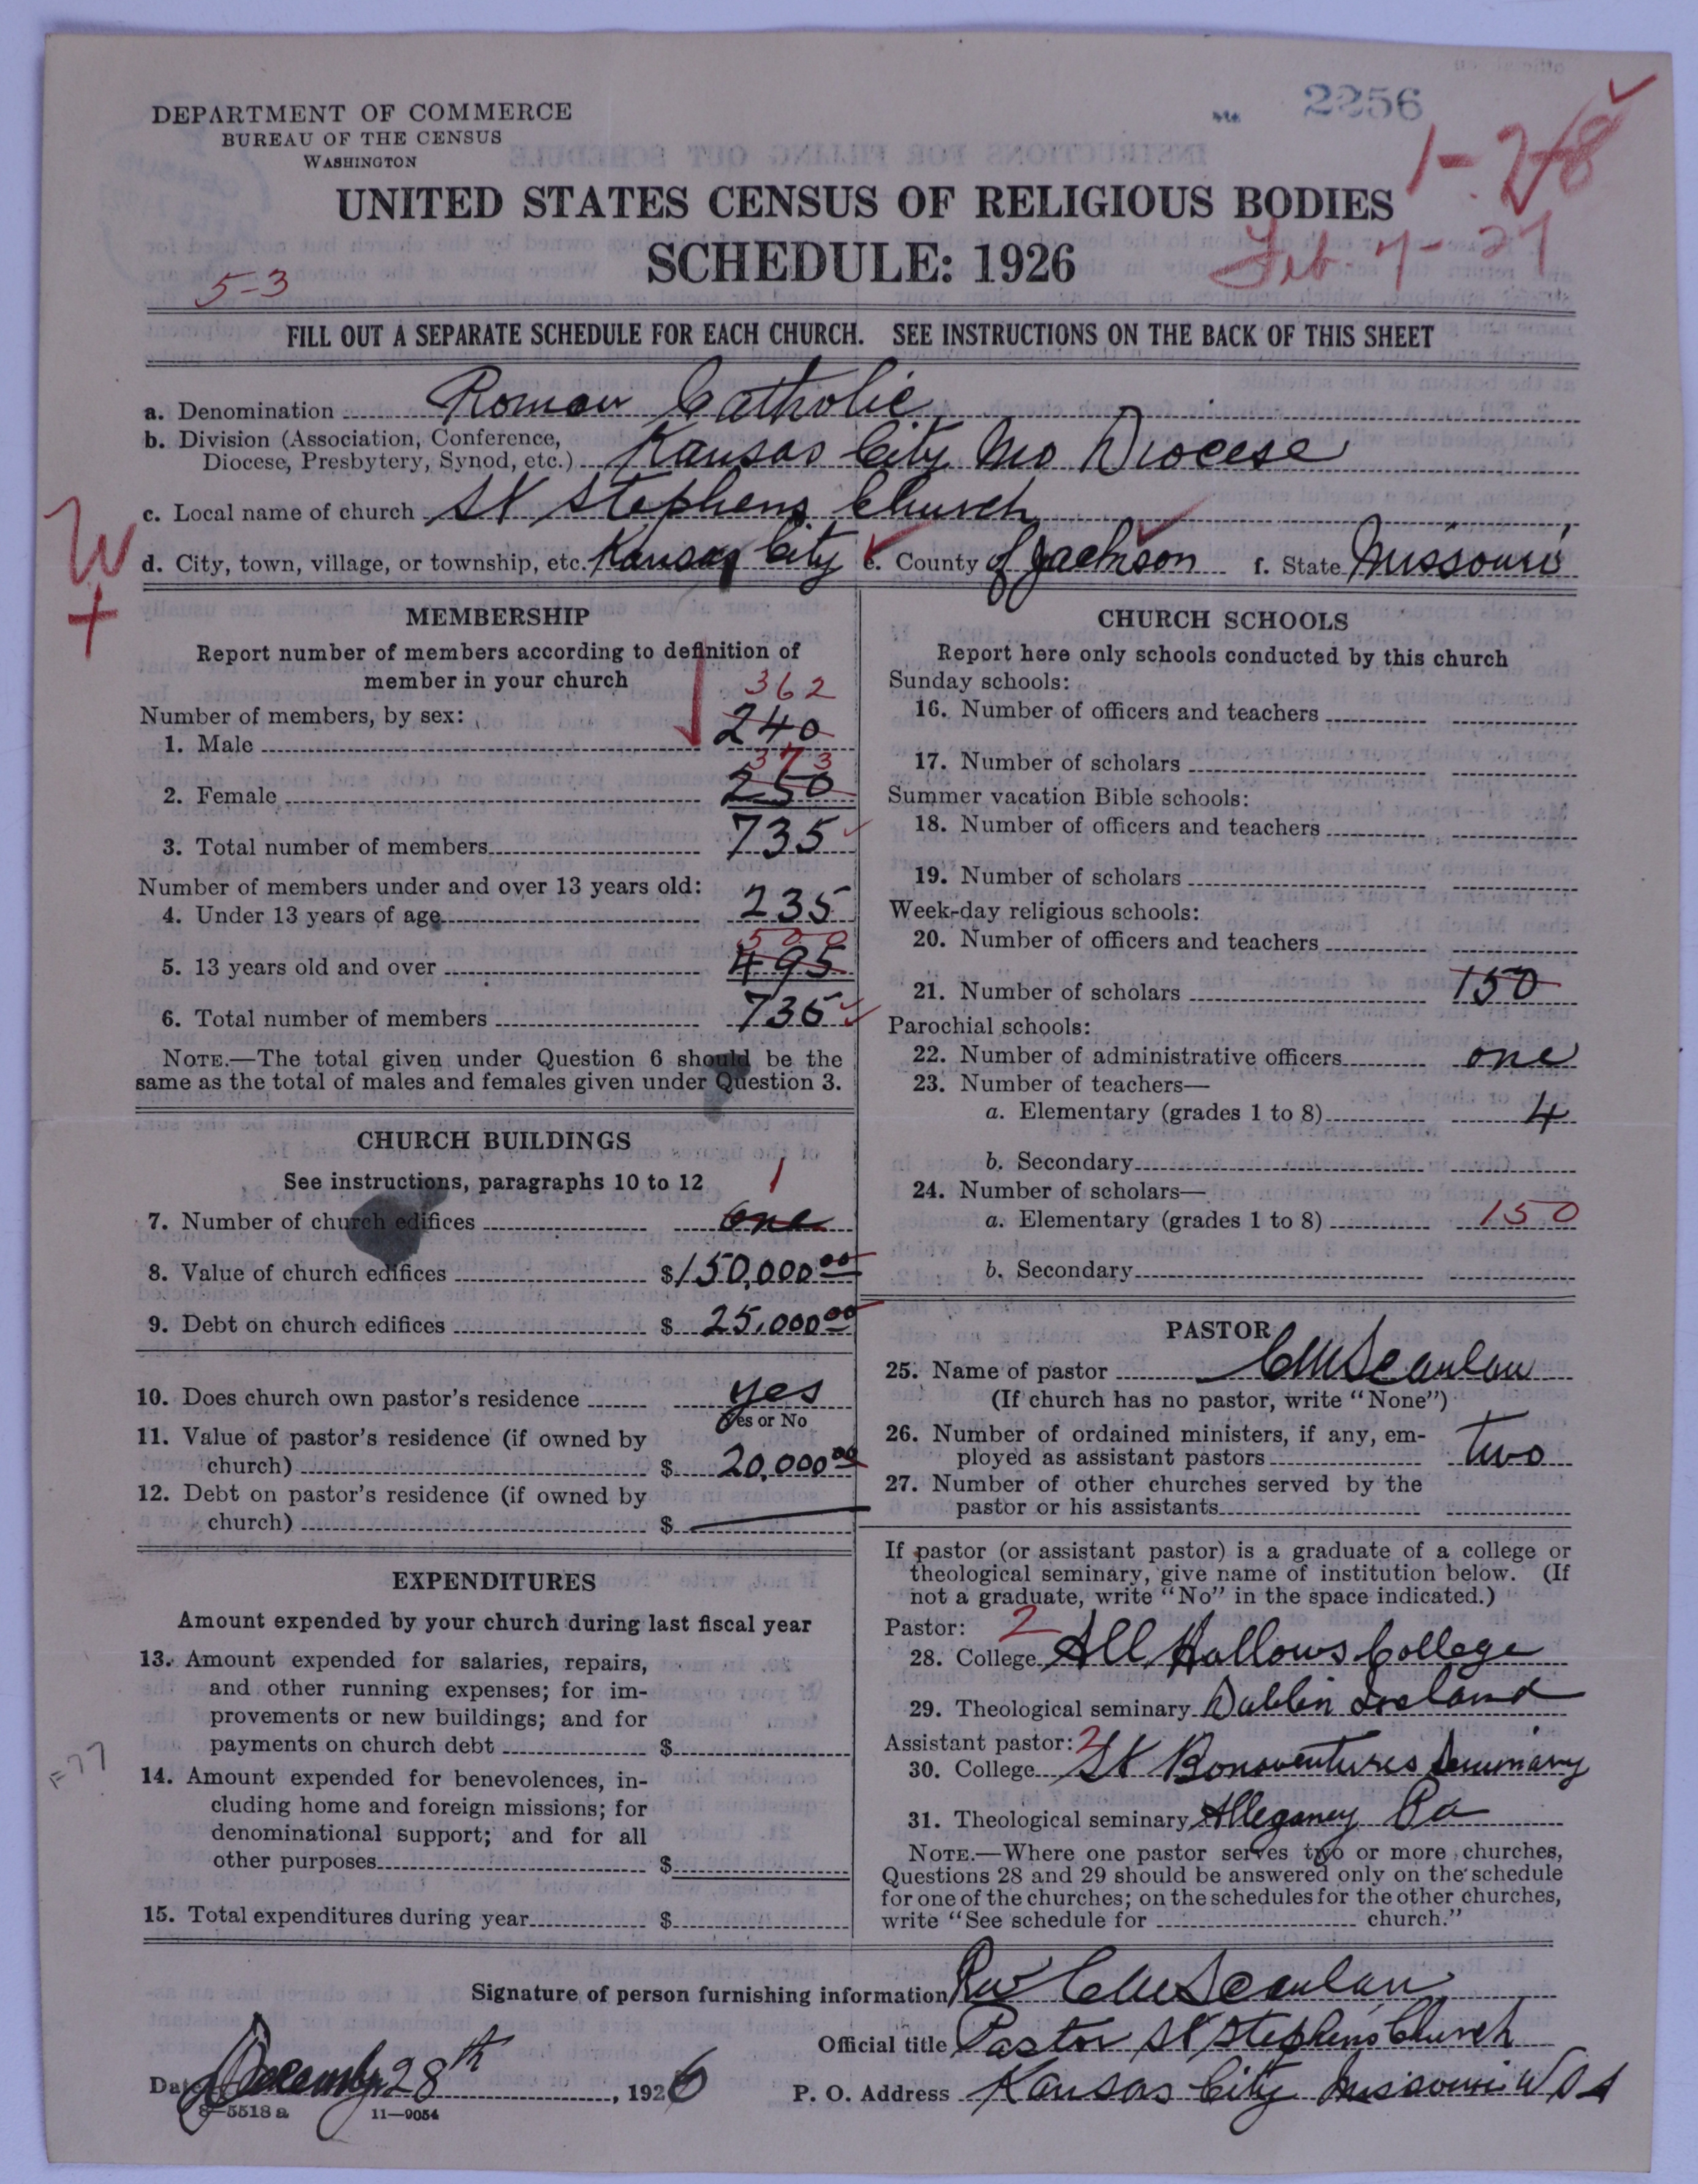 2256
DEPARTMENT OF COMMERCE
BUREAU OF THE CENSUS
WASHINGTON
1-28
UNITED STATES CENSUS OF RELIGIOUS BODIES
SCHEDULE: 1926
Feb-7-27
5-3
FILL OUT A SEPARATE SCHEDULE FOR EACH CHURCH. SEE INSTRUCTIONS ON THE BACK OF THIS SHEET
a. Denomination Roman Catholic
b. Division (Association, Conference,
Diocese, Presbytery, Synod, etc.) Kansas City Mo Diocese
c. Local name of church St Stephens Church
W
+
d. City, town, village, or township, etc. Kansas City e. County of Jackson f. State Missouri
MEMBERSHIP
Report number of members according to definition of
member in your church
Number of members, by sex:
362
1. Male 240
373
2. Female 250
3. Total number of members 735
Number of members under and over 13 years old:
4. Under 13 years of age 235
500
5. 13 years old and over 495
6. Total number of members 735
NOTE.—The total given under Question 6 should be the
same as the total of males and females given under Question 3.
CHURCH BUILDINGS
See instructions, paragraphs 10 to 12
1
7. Number of church edifices one
8. Value of church edifices $150,000 00
9. Debt on church edifices $ 25,000 00
10. Does church own pastor's residence yes
Yes or No
11. Value of pastor's residence (if owned by
church) $ 20,000 00
12. Debt on pastor's residence (if owned by
church) $
EXPENDITURES
Amount expended by your church during last fiscal year
13. Amount expended for salaries, repairs,
and other running expenses; for im-
provements or new buildings; and for
payments on church debt $
14. Amount expended for benevolences, in-
cluding home and foreign missions; for
denominational support; and for all
other purposes $
15. Total expenditures during year $
CHURCH SCHOOLS
Report here only schools conducted by this church
Sunday schools:
16. Number of officers and teachers
17. Number of scholars
Summer vacation Bible schools:
18. Number of officers and teachers
19. Number of scholars
Week-day religious schools:
20. Number of officers and teachers
21. Number of scholars 150
Parochial schools:
22. Number of administrative officers one
23. Number of teachers—
a. Elementary (grades 1 to 8) 4
b. Secondary
24. Number of scholars—
a. Elementary (grades 1 to 8) 150
b. Secondary
PASTOR
25. Name of pastor CM Scanlan
(If church has no pastor, write "None")
26. Number of ordained ministers, if any, em-
ployed as assistant pastors two
27. Number of other churches served by the
pastor or his assistants
If pastor (or assistant pastor) is a graduate of a college or
theological seminary, give name of institution below. (If
not a graduate, write "No" in the space indicated.)
Pastor: 2
28. College All Hallows College
29. Theological seminary Dublin Ireland
Assistant pastor: 2
30. College St Bonaventures Seminary
31. Theological seminary Allegany Pa
NOTE.—Where one pastor serves two or more churches,
Questions 28 and 29 should be answered only on the schedule
for one of the churches; on the schedules for the other churches,
write "See schedule for church."
Signature of person furnishing information Rev CM Scanlan
Official title Pastor St Stephens Church
Date December 28th, 1926
P. O. Address Kansas City Missouri
8—5518 a 11—9054